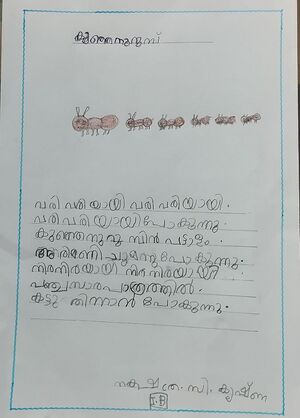 കുഞ്ഞനുറുമ്പ്
വരി വരിയായി വരി വരിയായി.
വരിവരിയായി പോകുന്നു.
കുഞ്ഞെനുറുമ്പിൻ പട്ടാളം.
അരിമണി ചുമന്നുപോകുന്നു.
നിരനിരയായി നിര നിരയായി
പഞ്ചസാരപാത്രത്തിൽ.
കട്ടു തിന്നാൻ പോകുന്നു.
നക്ഷത്ര. സി. കൃഷ്ണ
I.B